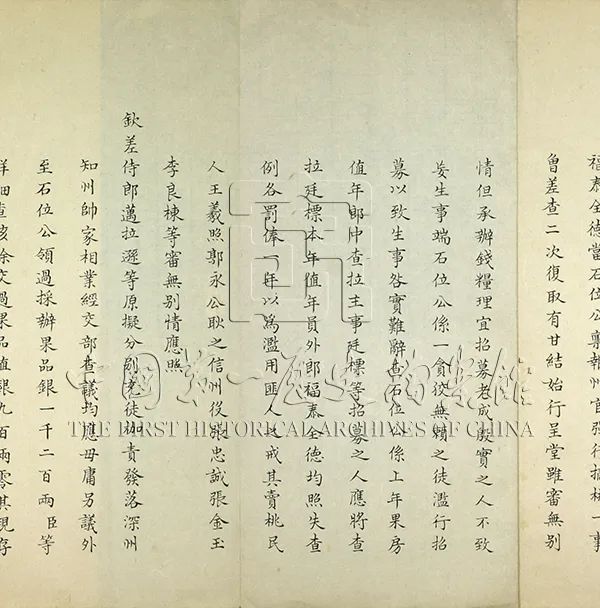 福泰全德當石位公稟報州官發行摘桃一事
曾差查二次復取有甘結始行呈堂雖審無別
情但承辦錢糧理宜招募老成殷實之人不致
妄生事端石位公係一貪狡無賴之徒濫行招
募以致生事咎實難辭查石位公係上年果房
值年郎中查拉主事廷標等招募之人應將查
拉廷標本年值年員外郎福泰全德均照失查
例各罰俸一年以為濫用匪人之戒其賣桃民
人王羲照鄂永公耿之信州役張忠誠張金玉
李良棟等審無別情應照
欽差侍郎邁拉遜等原擬分別徒責發落深州
知州帥家相業經交部查議均應毋庸另議外
至石位公領過採辦果品銀一千二百兩臣等
詳細查核除交過果品值銀九百兩零其現存
中國第一歷史檔案館
THE FIRST HISTORICAL ARCHIVES OF CHINA